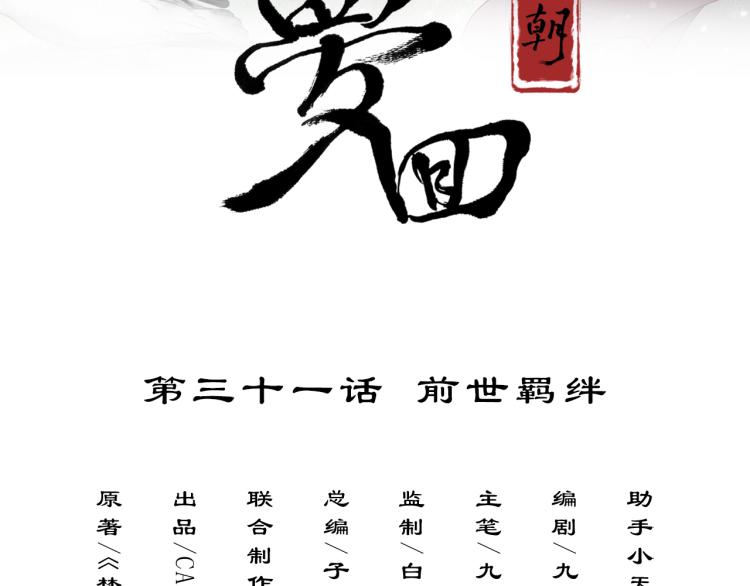 朝
回
第三十一话 前世羁绊
原著/《梦
出品/CA
联合制作
总编/子
监制/白
主笔/九
编剧/九
助手小天